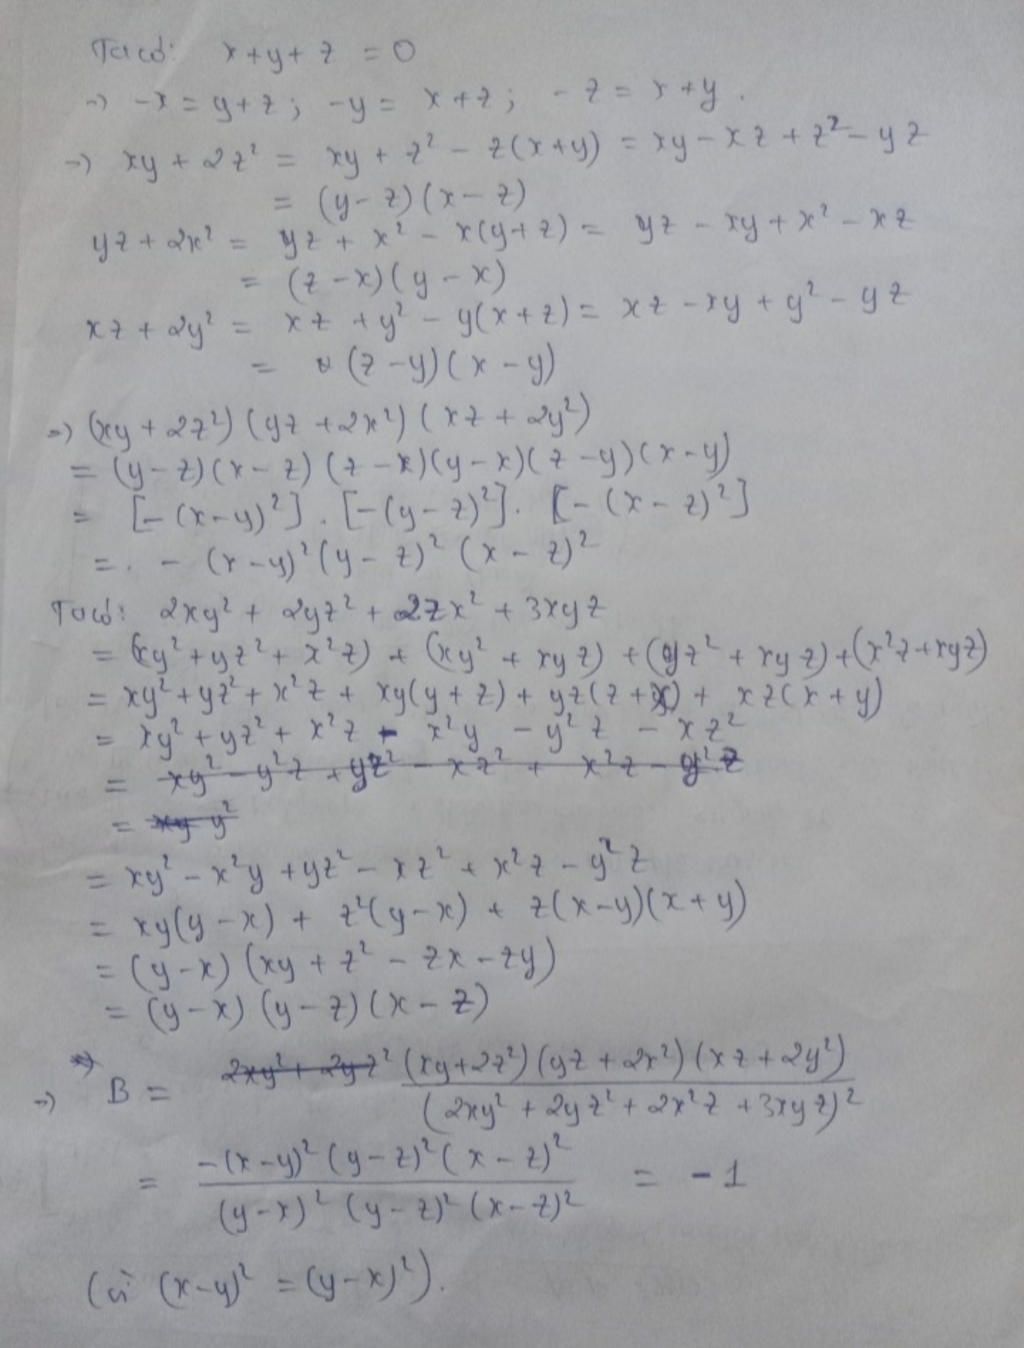 Ta có: x+y+z = 0
=) -x = y+z; -y = x+z; -z = x+y.
=) xy + 2z² = xy + z² - z(x+y) = xy - xz + z² - yz
= (y-z)(x-z)
yz + 2x² = yz + x² - x(y+z) = yz - xy + x² - xz
= (z-x)(y-x)
xz + 2y² = xz + y² - y(x+z) = xz - xy + y² - yz
= (z-y)(x-y)
=) (xy+2z²)(yz+2x²)(xz+2y²)
= (y-z)(x-z)(z-x)(y-x)(z-y)(x-y)
= [-(x-y)²].[-(y-z)²].[-(x-z)²]
= . - (x-y)²(y-z)²(x-z)²
Ta có: 2xy² + 2yz² + 2zx² + 3xyz
= (xy²+yz²+x²z) + (xy²+xyz) + (yz²+xyz) + (x²z+xyz)
= xy²+yz²+x²z + xy(y+z) + yz(z+x) + xz(x+y)
= xy²+yz²+x²z - x²y - y²z - xz²
= xy² - y²z + yz² - xz² + x²z - y²z
= xy y²
= xy² - x²y + yz² - xz² + x²z - y²z
= xy(y-x) + z²(y-x) + z(x-y)(x+y)
= (y-x)(xy + z² - zx - zy)
= (y-x)(y-z)(x-z)
=) B = 2xy² + 2yz² (xy+2z²)(yz+2x²)(xz+2y²)
(2xy² + 2yz² + 2x²z + 3xyz)²
= -(x-y)²(y-z)²(x-z)² = -1
(y-x)²(y-z)²(x-z)²
(vì (x-y)² = (y-x)²).